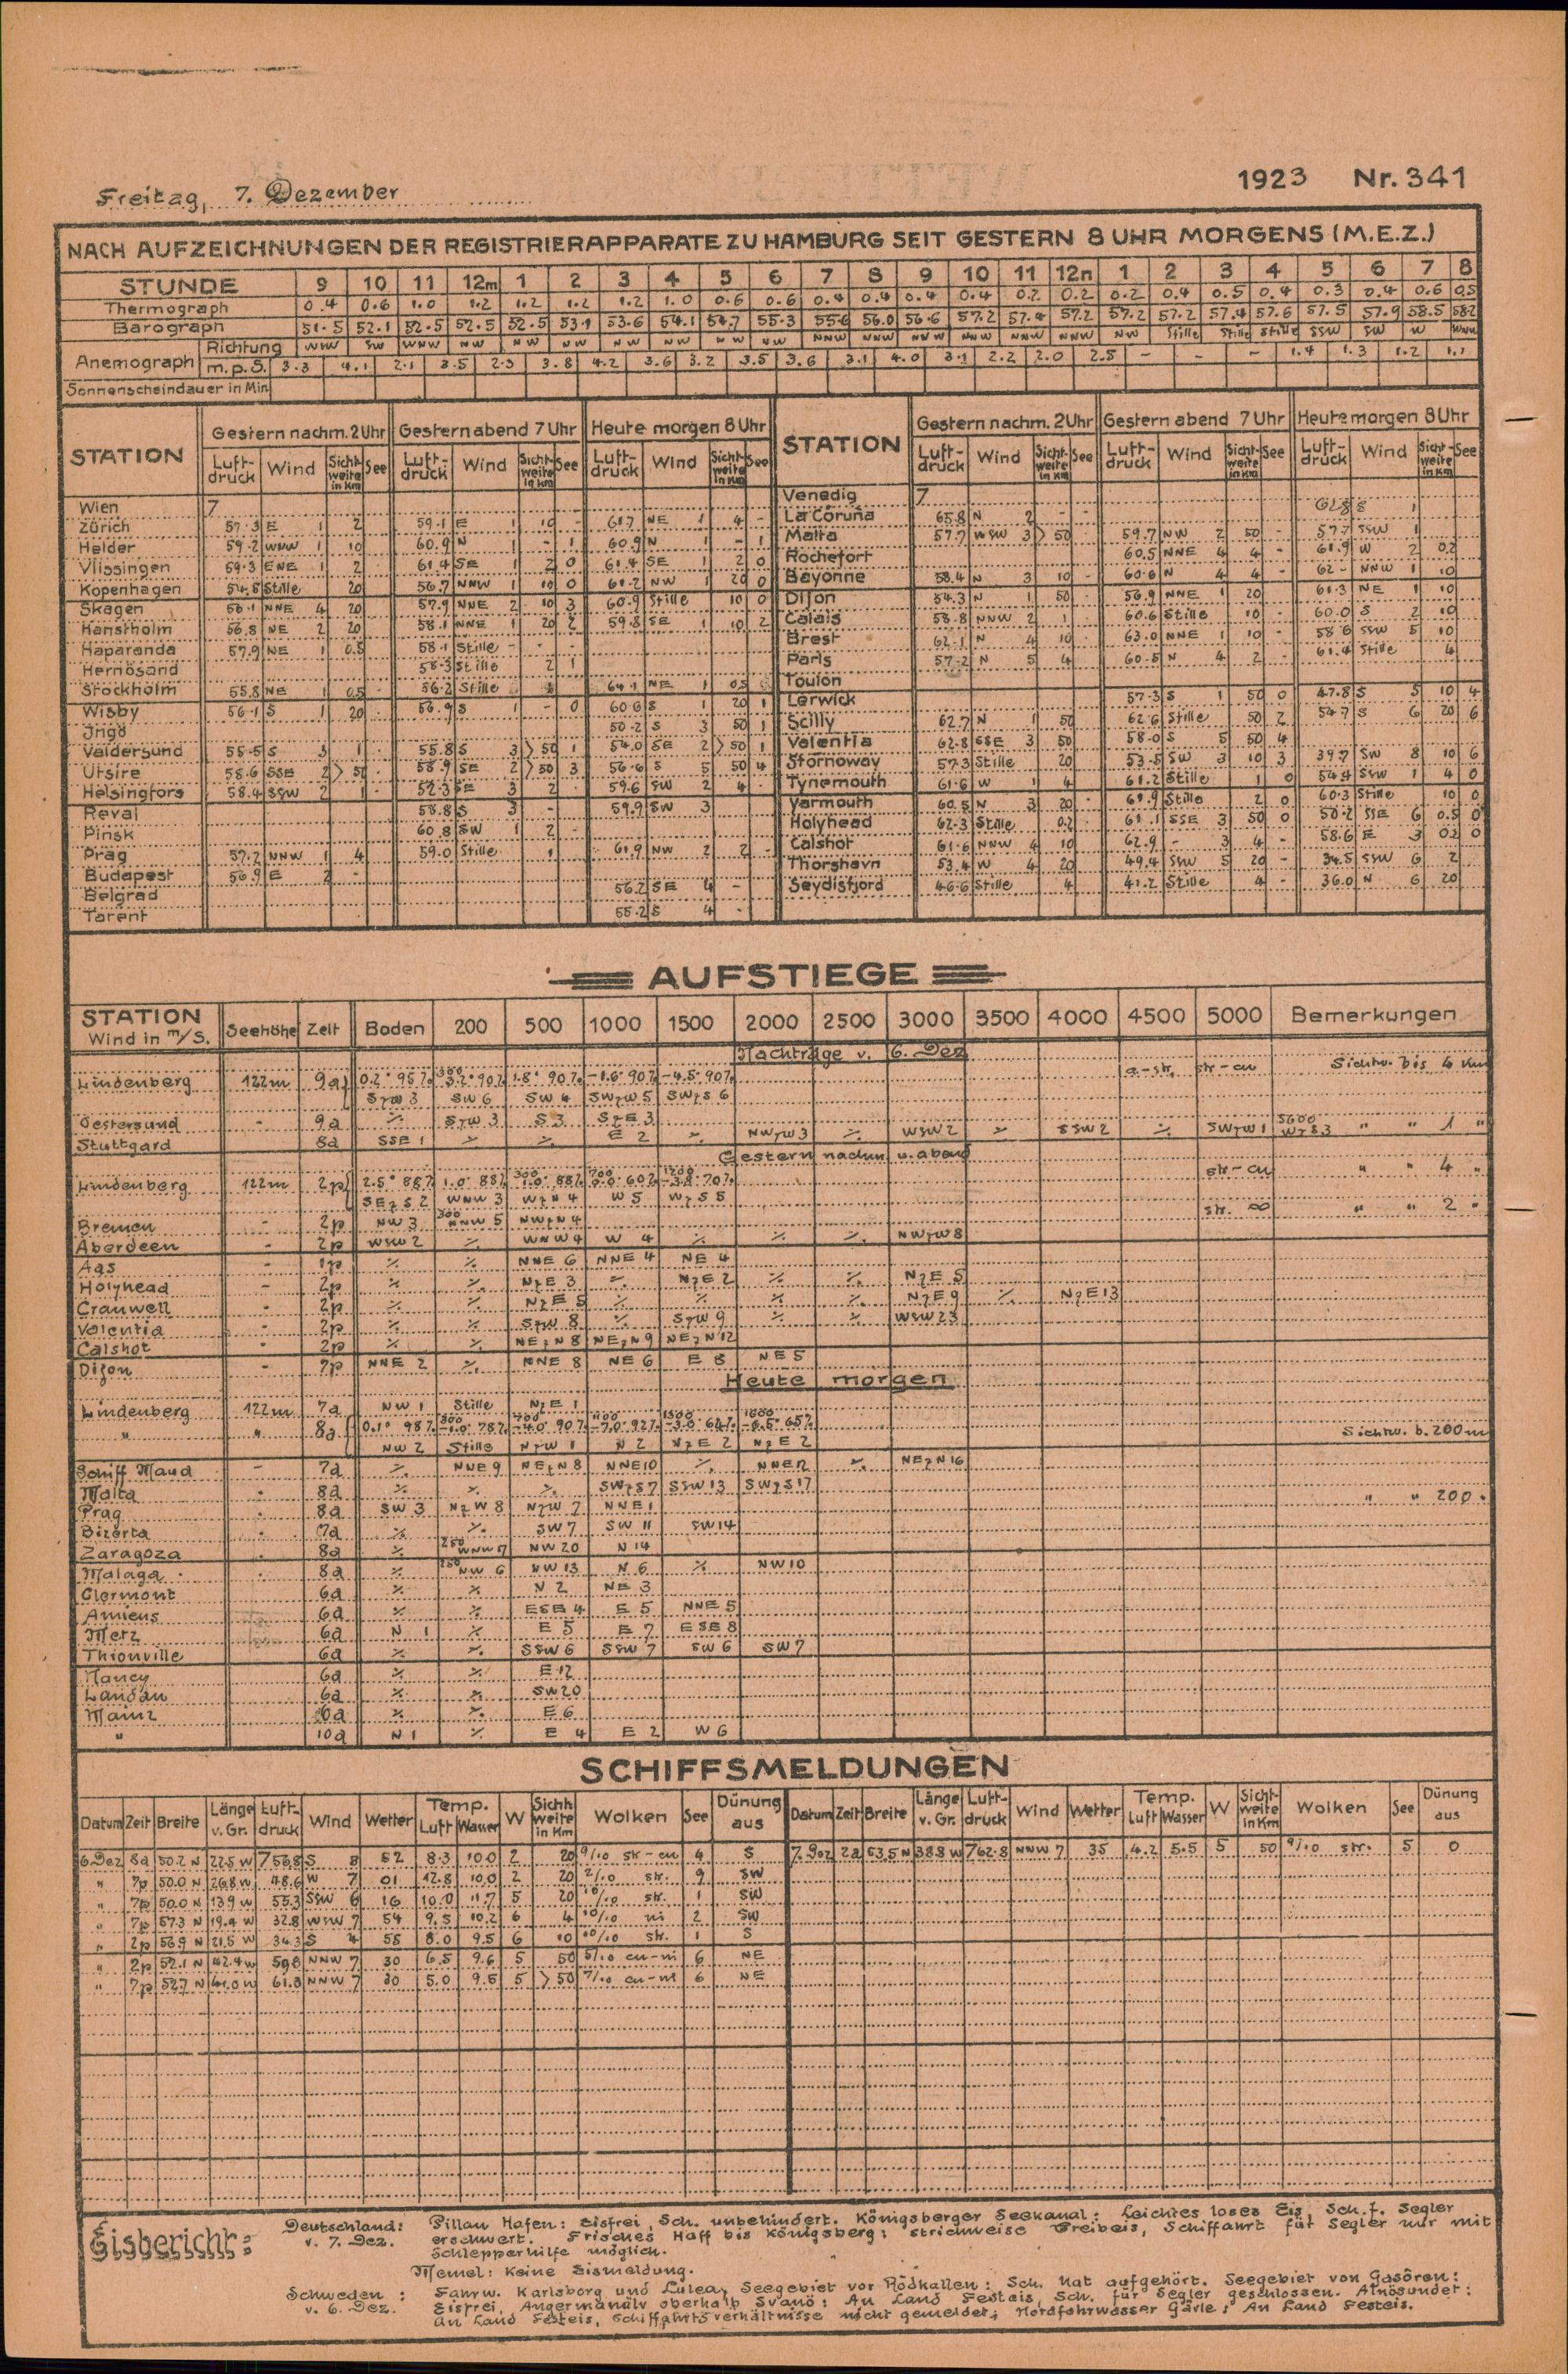 Freitag, 7. Dezember 1923 Nr. 341
NACH AUFZEICHNUNGEN DER REGISTRIERAPPARATE ZU HAMBURG SEIT GESTERN 8 UHR MORGENS (M.E.Z.)
STUNDE 9 10 11 12m 1 2 3 4 5 6 7 8 9 10 11 12n 1 2 3 4 5 6 7 8
Thermograph 0.4 0.6 1.0 1.2 1.2 1.2 1.2 1.0 0.6 0.6 0.4 0.4 0.4 0.4 0.2 0.2 0.2 0.4 0.5 0.4 0.3 0.4 0.6 0.5
Barograph 51.5 52.1 52.5 52.5 52.5 53.1 53.6 54.1 54.7 55.3 55.6 56.0 56.6 57.2 57.4 57.2 57.2 57.2 57.4 57.6 57.5 57.9 58.5 58.2
Anemograph Richtung WNW SW WNW NW NW NW NW NW NW NW NNW NNW NW NNW NNW NNW NW Stille Stille Stille SSW SW W WNW
m.p.S. 3.3 4.1 2.1 3.5 2.3 3.8 4.2 3.6 3.2 3.5 3.6 3.1 4.0 3.1 2.2 2.0 2.5 - - - 1.4 1.3 1.2 1.1
Sonnenscheindauer in Min
STATION Gestern nachm. 2 Uhr Gestern abend 7 Uhr Heute morgen 8 Uhr STATION Gestern nachm. 2 Uhr Gestern abend 7 Uhr Heute morgen 8 Uhr
Luftdruck Wind Sichtweite in Km See Luftdruck Wind Sichtweite in Km See Luftdruck Wind Sichtweite in Km See Luftdruck Wind Sichtweite in Km See Luftdruck Wind Sichtweite in Km See Luftdruck Wind Sichtweite in Km See
Wien 7 Venedig 7
Zürich 57.3 E 1 2 59.1 E 1 10 - 61.7 NE 1 4 - La Coruña 65.8 N 2 - - 62.8 S 1
Helder 59.2 WNW 1 10 60.9 N 1 - 1 60.9 N 1 - 1 Malta 57.7 WSW 3 > 50 59.7 NW 2 50 - 57.7 SSW 1
Vlissingen 59.3 ENE 1 2 61.4 SE 1 2 0 61.4 SE 1 2 0 Rochefort 60.5 NNE 4 4 - 61.9 W 2 0.2
Kopenhagen 54.5 Stille 20 56.7 NNW 1 10 0 61.2 NW 1 20 0 Bayonne 58.4 N 3 10 - 60.6 N 4 4 - 62 - NNW 1 10
Skagen 56.1 NNE 4 20 57.9 NNE 2 10 3 60.9 Stille 10 0 Dijon 54.3 N 1 50 56.9 NNE 1 20 61.3 NE 1 10
Hanstholm 56.8 NE 2 20 58.1 NNE 1 20 2 59.8 SE 1 10 2 Calais 58.8 NNW 2 1 60.6 Stille 10 - 60.0 S 2 10
Haparanda 57.9 NE 1 0.5 58.1 Stille - - - Brest 62.1 N 4 10 63.0 NNE 1 10 - 58.6 SSW 5 10
Hernösand 58.3 Stille 2 1 Paris 57.2 N 5 4 60.5 N 4 2 - 61.4 Stille 4
Stockholm 55.8 NE 1 0.5 56.2 Stille 64.1 NE 1 0.5 Toulon
Wisby 56.1 S 1 20 56.9 S 1 - 0 60.6 S 1 20 1 Lerwick 57.3 S 1 50 0 47.8 S 5 10 4
Ingö 50.2 S 3 50 1 Scilly 62.7 N 1 50 62.6 Stille 50 2 54.7 S 6 20 6
Valdersund 55.5 S 3 1 55.8 S 3 > 50 1 54.0 SE 2 > 50 1 Valentia 62.8 SSE 3 50 58.0 S 5 50 4
Utsire 58.6 SSE 2 > 50 58.9 SE 2 > 50 3 56.6 S 5 50 4 Stornoway 57.3 Stille 20 53.5 SW 3 10 3 39.7 SW 8 10 6
Helsingfors 58.4 SSW 2 1 52.3 SE 3 2 59.6 SW 2 4 Tynemouth 61.6 W 1 4 61.2 Stille 1 0 54.4 SSW 1 4 0
Reval 58.8 S 3 - 59.9 SW 3 Yarmouth 60.5 N 3 20 61.9 Stille 2 0 60.3 Stille 10 0
Pinsk 60.8 SW 1 2 - Holyhead 62.3 Stille 0.2 61.1 SSE 3 50 0 50.2 SSE 6 0.5 0
Prag 57.2 NNW 1 4 59.0 Stille 1 61.9 NW 2 2 - Calshot 61.6 NNW 4 10 62.9 - 3 4 - 58.6 E 3 0.2 0
Budapest 56.9 E 2 - Thorshavn 53.4 W 4 20 49.4 SSW 5 20 - 34.5 SSW 6 2
Belgrad 56.2 SE 4 - Seydisfjord 46.6 Stille 4 41.2 Stille 4 - 36.0 N 6 20
Tarent 55.2 S 4 -
AUFSTIEGE
STATION Wind in m/S. Seehöhe Zeit Boden 200 500 1000 1500 2000 2500 3000 3500 4000 4500 5000 Bemerkungen
Nachträge v. 6. Dez
Lindenberg 122m 9a 0.2° 95% 300 -3.2° 90% 1.8° 90% -1.6° 90% -4.5° 90% a-str. str-cu Sichtw. bis 4 km
SzW 3 SW 6 SW 4 SWzW 5 SWzS 6
Oestersund - 9a % SzW 3 S 3 SzE 3
Stuttgard 8a SSE 1 % % E 2 % NWzW 3 % WSW 2 % SSW 2 % SWzW 1 5600 WzS 3 " " 1 "
Gestern nachm u. abend
Lindenberg 122m 2p 2.5° 88% 1.0° 88% 300 -1.0° 88% 700 0.0° 60% 1200 -3.8° 70% str-cu " " 4 "
SEzS 2 WNW 3 WzN 4 W 5 WzS 5
Bremen - 2p NW 3 300 NNW 5 NWzN 4 str. ∞ " " 2 "
Aberdeen - 2p WSW 2 % WNW 4 W 4 % % % NWzW 8
Ags - 1p % % NNE 6 NNE 4 NE 4
Holyhead - 2p % % NzE 3 % NzE 2 % % NzE 5
Cranwell - 2p % % NzE 5 % % % % NzE 9 % NzE 13
Valentia - 2p % % SzW 8 % SzW 9 % % WSW 23
Calshot - 2p % % NEzN 8 NEzN 9 NEzN 12
Dijon - 7p NNE 2 % NNE 8 NE 6 E 8 NE 5
Heute morgen
Lindenberg 122m 7a NW 1 Stille NzE 1
" " 8a 0.1° 98% 300 -1.0° 78% 400 -4.0° 90% 1100 -7.0° 92% 1300 -3.8° 62% 1600 -6.5° 65% Sichtw. b. 200m
NW 2 Stille NzW 1 N 2 NzE 2 NzE 2
Schiff Maud - 7a % NNE 9 NEzN 8 NNE 10 % NNE 12 % NEzN 16
Malta - 8a % % % SWzS 7 SSW 13 SWzS 17
Prag - 8a SW 3 NzW 8 NzW 7 NNE 1 " " 200 "
Bizerta - 7a % % SW 7 SW 11 SW 14
Zaragoza - 8a % 250 WNW 7 NW 20 N 14
Malaga - 8a % 250 NW 6 NW 13 N 6 % NW 10
Clermont 6a % % N 2 NE 3
Amiens 6a % % ESE 4 E 5 NNE 5
Metz 6a N 1 % E 5 E 7 ESE 8
Thionville 6a % % SSW 6 SSW 7 SW 6 SW 7
Nancy 6a % % E 12
Landau 6a % % SW 20
Mainz 6a % % E 6
" 10a N 1 % E 4 E 2 W 6
SCHIFFSMELDUNGEN
Datum Zeit Breite Länge v. Gr. Luftdruck Wind Wetter Temp. Luft Wasser W Sichtweite in Km Wolken See Dünung aus Datum Zeit Breite Länge v. Gr. Luftdruck Wind Wetter Temp. Luft Wasser W Sichtweite in Km Wolken See Dünung aus
6. Dez 8a 50.2 N 22.5 W 756.8 S 8 52 8.3 10.0 2 20 9/10 str-cu 4 S 7. Dez 2a 53.5 N 38.8 W 762.8 NNW 7 35 4.2 5.5 5 50 9/10 str. 5 0
" 7p 50.0 N 26.8 W 48.6 W 7 01 12.8 10.0 2 20 2/10 str. 9 SW
" 7p 50.0 N 13.9 W 55.3 SSW 6 16 10.0 11.7 5 20 10/10 str. 1 SW
" 7p 57.3 N 19.4 W 32.8 WSW 7 54 9.5 10.2 6 4 10/10 ni 2 SW
" 2p 56.9 N 21.5 W 34.3 S 4 58 8.0 9.5 6 10 10/10 str. 1 S
" 2p 52.1 N 42.4 W 59.8 NNW 7 30 6.5 9.6 5 50 5/10 cu-ni 6 NE
" 7p 52.7 N 41.0 W 61.8 NNW 7 30 5.0 9.5 5 > 50 7/10 cu-ni 6 NE
Eisbericht:
Deutschland: Pillau Hafen: Eisfrei, Sch. unbehindert. Königsberger Seekanal: Leichtes loses Eis, Sch. f. Segler
v. 7. Dez. erschwert. Frisches Haff bis Königsberg: strichweise Treibeis, Schiffahrt für Segler nur mit
Schlepperhilfe möglich.
Memel: Keine Eismeldung.
Schweden: Fahrw. Karlsborg und Lulea, Seegebiet vor Rödkallen: Sch. hat aufgehört. Seegebiet von Gasören:
v. 6. Dez. Eisfrei, Angermanälv oberhalb Svanö: An Land Festeis, Sch. für Segler geschlossen. Alnösundet:
An Land Festeis, Schiffahrtsverhältnisse nicht gemeldet; Nordfahrwasser Gävle: An Land Festeis.